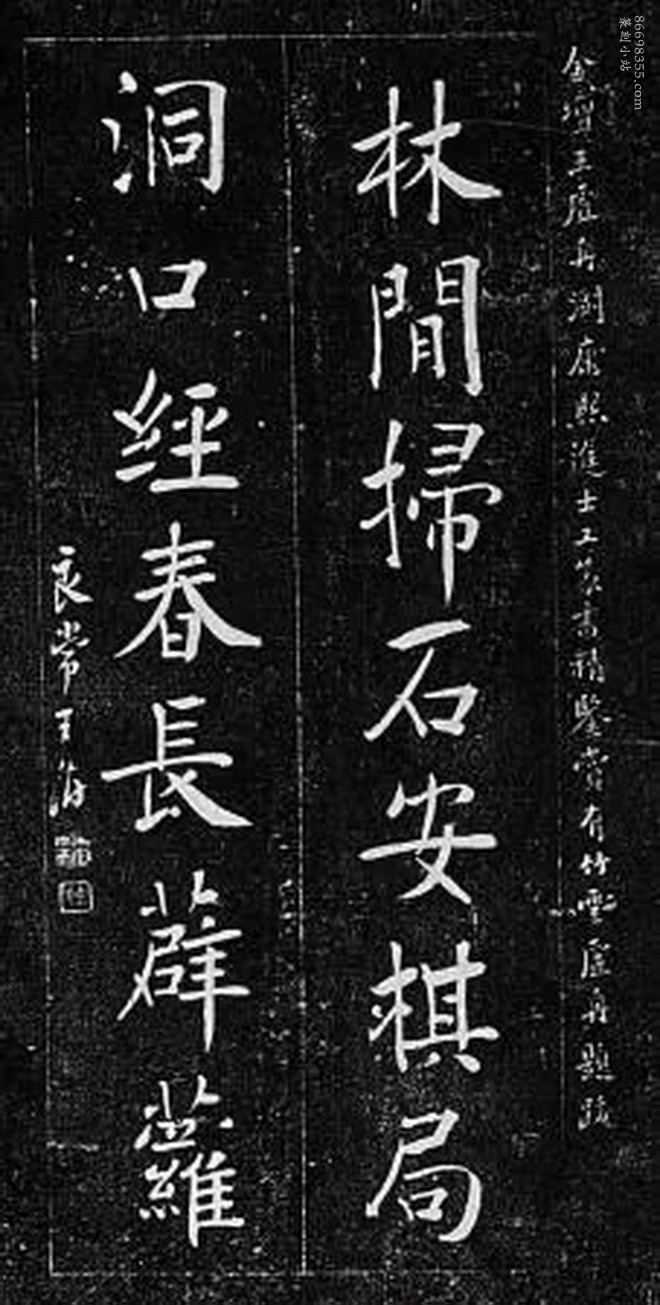 金壇王虛舟澍康熙進士工篆書精鑒賞有竹雲虛舟題跋
林閒掃石安棋局
洞口經春長薜蘿
良常王澍
86698355.com
篆刻小站